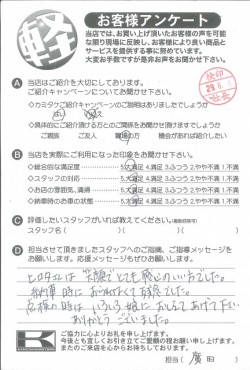 軽
お客様アンケート
当店では、お買い上げ頂いたお客様の声を可能
な限り現場に反映し、お客様により良い商品と
サービスを提供する事に努めています。
大変お手数ですが是非お声をお聞かせ下さい。
A 当店はご紹介を大切にしております。
ご紹介キャンペーンについてお聞かせ下さい。
◇カミタケご紹介キャンペーンのご説明はありましたでしょうか
はい いいえ
◇具体的にご紹介頂ける方とのご関係をお聞かせ頂けますでしょうか
ご親族 ご友人 職場の方 機会があれば紹介したい
B 当店を実際にご利用になった印象をお聞かせ下さい。
◇総合的な満足度 5.大満足 4.満足 3.ふつう 2.やや不満 1.不満
◇スタッフの対応 5.大満足 4.満足 3.ふつう 2.やや不満 1.不満
◇お店の雰囲気、清掃 5.大満足 4.満足 3.ふつう 2.やや不満 1.不満
◇納車時のお車の状態 5.大満足 4.満足 3.ふつう 2.やや不満 1.不満
C 評価したいスタッフがいれば教えてください。
スタッフ名( )( )( )
D 担当させて頂きましたスタッフへのご指摘、ご指導メッセージを
お願いします。応援メッセージもぜひお願いします。
笑顔でとても感じのいい方でした。
納車時に おあいできなくて残念でした。
点検の時は いろいろ 娘に おしえてあげて下さい
ありがとうございました。
K
ご協力に心よりお礼を申し上げます。
今後とも宜しくお引き立てご愛顧の程お願い申し上げます。
またのご来店を心からお待ちしております。
担当( 廣田 )